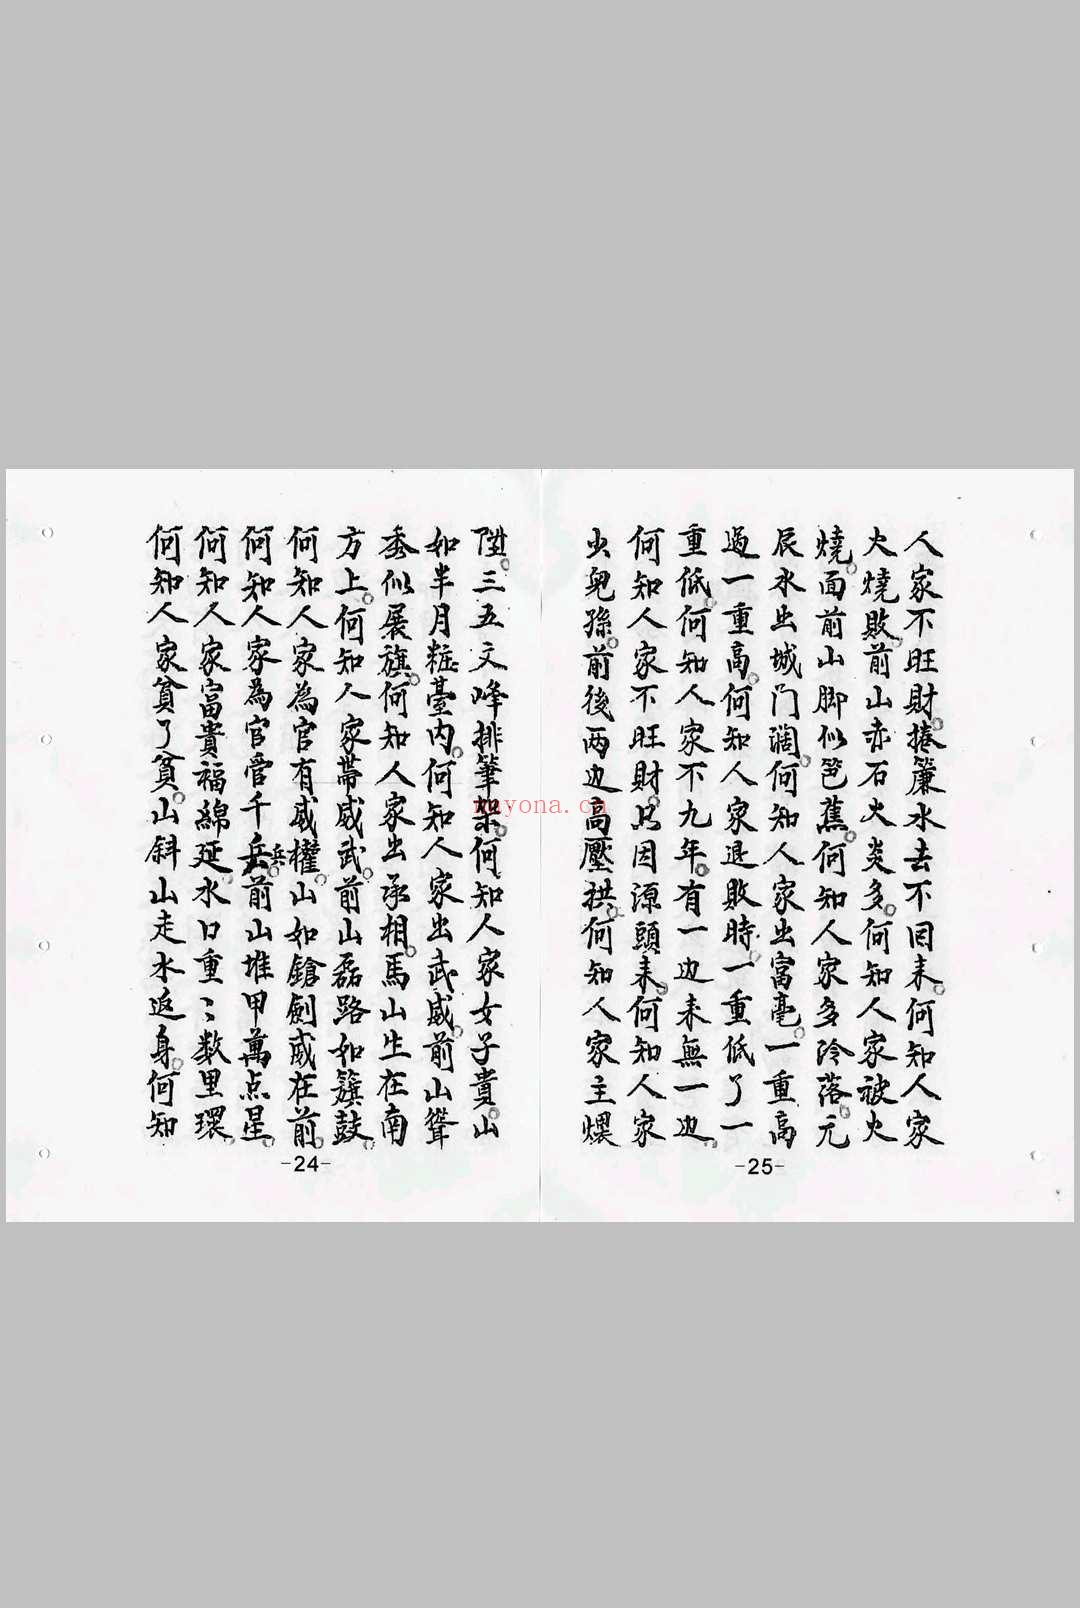 陞。三五文峰排筆架。何知人家女子貴。山
如半月粧臺內。何知人家出武威。前山聳
秀似展旗。何知人家出承相。馬山生在南
方上。何知人家帶威武。前山磊路如簇鼓。
何知人家為官有威權。山如鎗劍威在前。
何知人家為官管千兵。前山堆甲萬点星。
兵
何知人家富貴福綿延。水口重〻数里環。
何知人家貧了貧。山斜山走水返身。何知
-24-
人家不旺財。捲簾水去不回来。何知人家
火燒敗。前山赤石火炎多。何知人家被火
燒。面前山脚似笆蕉。何知人家多冷落。元
辰水出城门濶。何知人家出富毫。一重高
過一重高。何知人家退敗時。一重低了一
重低。何知人家不九年。有一边来無一边。
何知人家不旺財。只因源頭来。何知人家
出兒孫。前後両边高壓拱。何知人家主㷄
-25-
nayona.cn